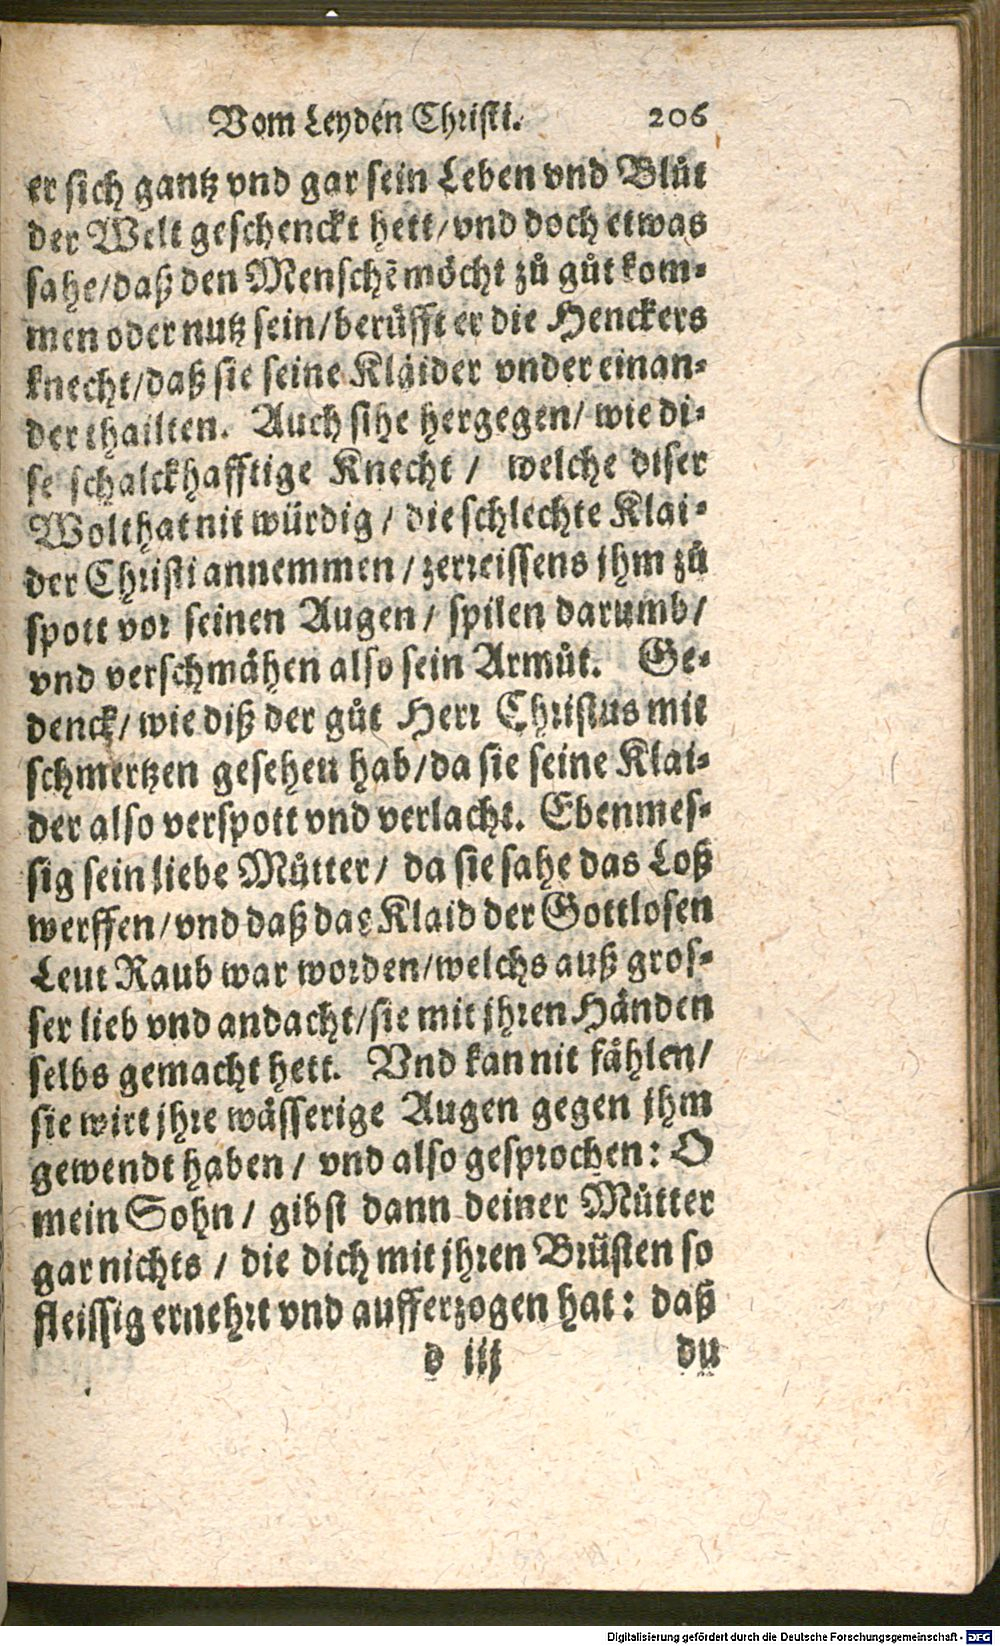 Vom Leyden Christi. 206
er sich gantz vnd gar sein Leben vnd Blůt
der Welt geschenckt hett/vnd doch etwas
sahe/daß den Menschē möcht zů gůt kom⸗
men oder nutz sein/berůfft er die Henckers
knecht/daß sie seine Kläider vnder einan⸗
der thailten. Auch sihe hergegen/ wie di⸗
se schalckhafftige Knecht / welche diser
Wolthat nit würdig / die schlechte Klai⸗
der Christi annemmen / zerreissens jhm zů
spott vor seinen Augen / spilen darumb/
vnd verschmähen also sein Armůt. Ge⸗
denck/ wie diß der gůt Herr Christus mit
schmertzen gesehen hab/da sie seine Klai⸗
der also verspott vnd verlacht. Ebenmes⸗
sig sein liebe Můtter/ da sie sahe das Loß
werffen/vnd daß das Klaid der Gottlosen
Leut Raub war worden/welchs auß gros⸗
ser lieb vnd andacht/sie mit jhren Händen
selbs gemacht hett. Vnd kan nit fählen/
sie wirt jhre wässerige Augen gegen jhm
gewendt haben / vnd also gesprochen: O
mein Sohn / gibst dann deiner Můtter
gar nichts / die dich mit jhren Brüsten so
fleissig ernehrt vnd aufferzogen hat: daß
d iij du
Digitalisierung gefördert durch die Deutsche Forschungsgemeinschaft - DFG